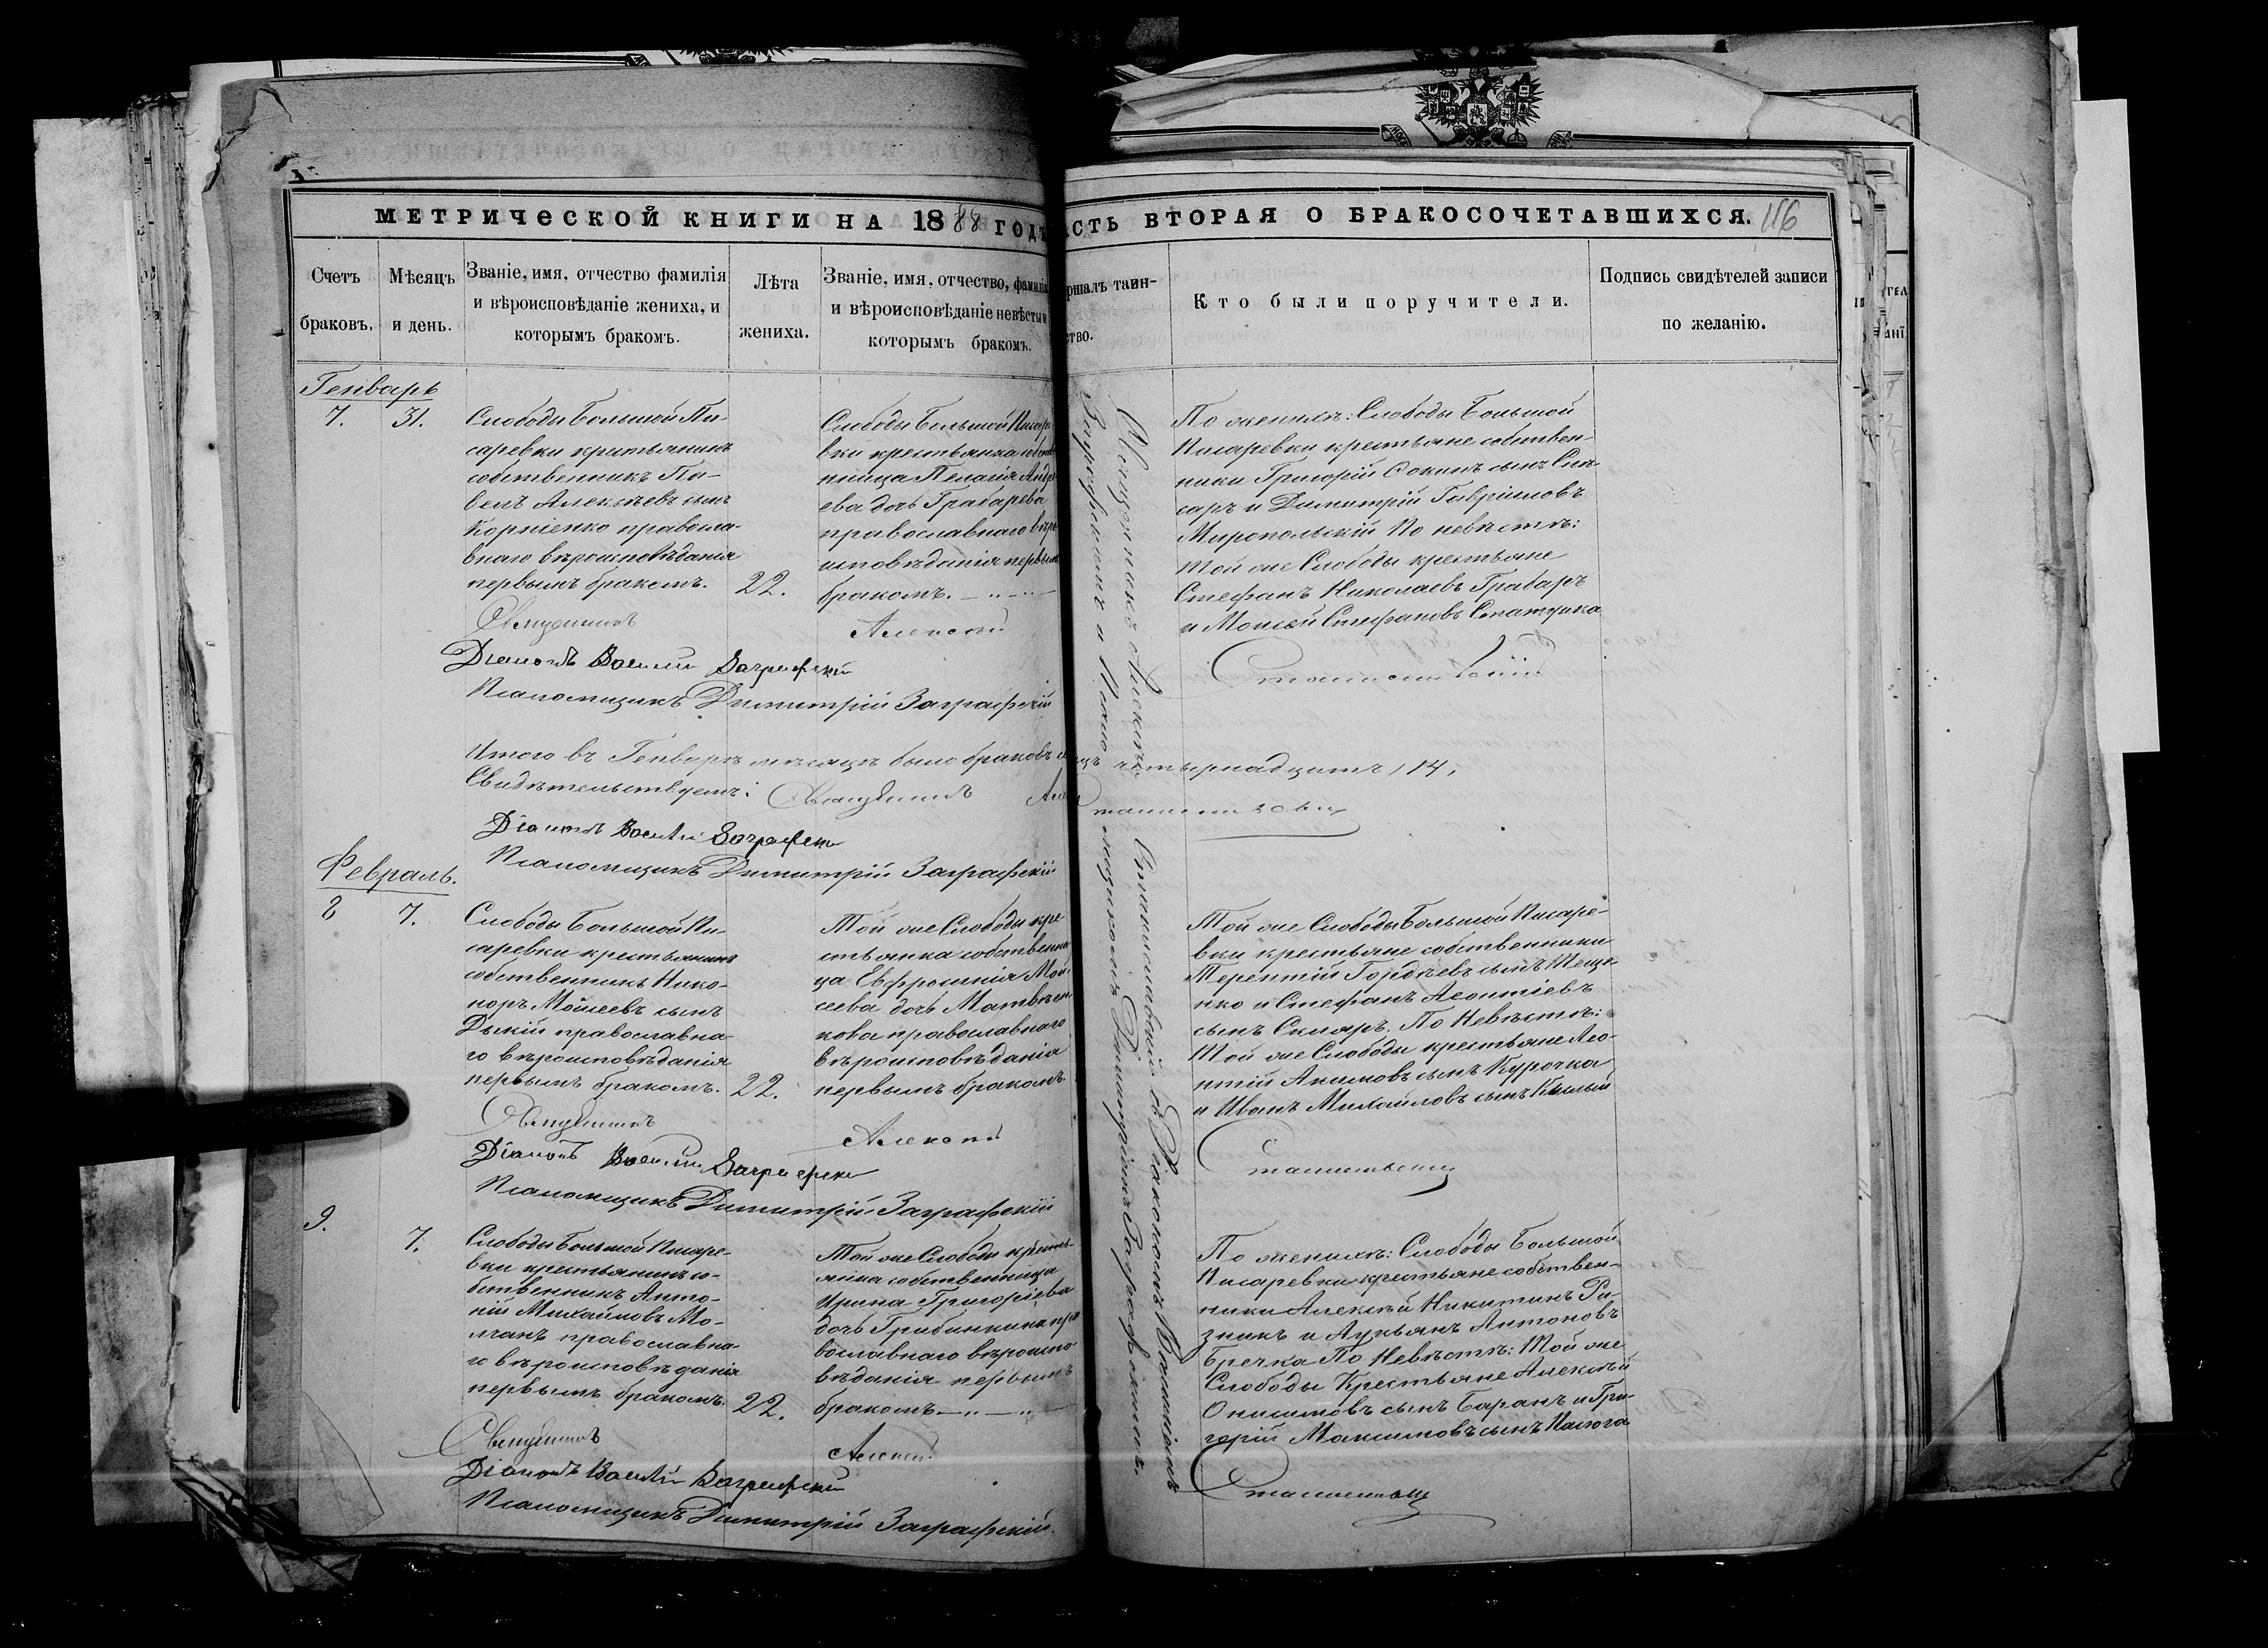 МЕТРИЧЕСКОЙ КНИГИ НА 1888 ГОДЪ
АСТЬ ВТОРАЯ О БРАКОСОЧЕТАВШИХСЯ. 116
Счетъ
браковъ.
Мѣсяцъ
и день.
Званіе, имя, отчество фамилія
и вѣроисповѣданіе жениха, и
которымъ бракомъ.
Лѣта
жениха.
Званіе, имя, отчество, фамилія
и вѣроисповѣданіе невѣсты и
которымъ бракомъ.
ршалъ таин-
ство.
Кто были поручители.
Подпись свидѣтелей записи
по желанію.
Генварь
7. 31.
Слободы Большой Пи-
саревки крестьянинъ
собственникъ Па-
велъ Алексѣевъ сынъ
Корніенко правосла-
внаго вѣроисповѣданія
первымъ бракомъ.
22.
Слободы Большой Писаре
вки крестьянка собств
нница Пелагія Андре
ева дочь Грабарева
православнаго вѣро
исповѣданія первым
бракомъ.
По женихѣ: Слободы Большой
Писаревки крестьяне собствен-
ники Григорій Фокинъ сынъ
саръ и Димитрій Гавріиловъ
Миропольскій По невѣстѣ:
Той же Слободы крестьяне
Стефанъ Николаевъ Грабаръ
и Моисей Стефановъ Статуика
Священникъ Алексѣй Станиславскій
Діаконъ Василій Заграфскій
Псаломщикъ Димитрій Заграфскій
Итого въ Генварѣ мѣсяцѣ было браковъ четырнадцать, 14,
Свидѣтельствуемъ: Священникъ
Діаконъ Василій Заграфскій
Псаломщикъ Димитрій Заграфскій
Февраль.
8 7.
Слободы Большой Пи-
саревки крестьянинъ
собственникъ Нико-
норъ Мойсеевъ сынъ
Дикій православна-
го вѣроисповѣданія
первымъ бракомъ.
22.
Той же Слободы кре
стьянка собственни
ца Евфросинія Мой
сеева дочь Матвѣен
кова православнаго
вѣроисповѣданія
первымъ бракомъ
Той же Слободы Большой Писаре-
вки крестьяне собственники
Терентій Гордѣевъ сынъ Теще-
нко и Стефанъ Леонтіевъ
сынъ Скляръ. По Невѣстѣ:
Той же Слободы крестьяне Лео-
нтій Акимовъ сынъ Курочка
и Иванъ Михайловъ сынъ
Священникъ Алексѣй
Діаконъ Василій Заграфскій
Псаломщикъ Димитрій Заграфскій
9. 7.
Слободы Большой Писаре-
вки крестьянинъ со-
бственникъ Анто-
ній Михайловъ Мо-
лчанъ православна-
го вѣроисповѣданія
первымъ бракомъ.
22.
Той же Слободы кресть-
янка собственница
Ирина Григоріева
дочь Грибинкина пра
вославнаго вѣроиспо
вѣданія первымъ
бракомъ
По женихѣ: Слободы Большой
Писаревки крестьяне собствен-
ники Алексѣй Никитинъ Рѣ-
зникъ и Лукьянъ Антоновъ
Бречка По Невѣстѣ: Той же
Слободы Крестьяне Алексѣй
Онисимовъ сынъ Баранъ и Гри-
горій Максимовъ сынъ
Священникъ Алексѣй
Діаконъ Василій Заграфскій
Псаломщикъ Димитрій Заграфскій.
Священникъ Алексѣй Станиславскій съ Діакономъ Василіемъ
Заграфскимъ и Псаломщикомъ Димитріемъ Заграфскимъ.